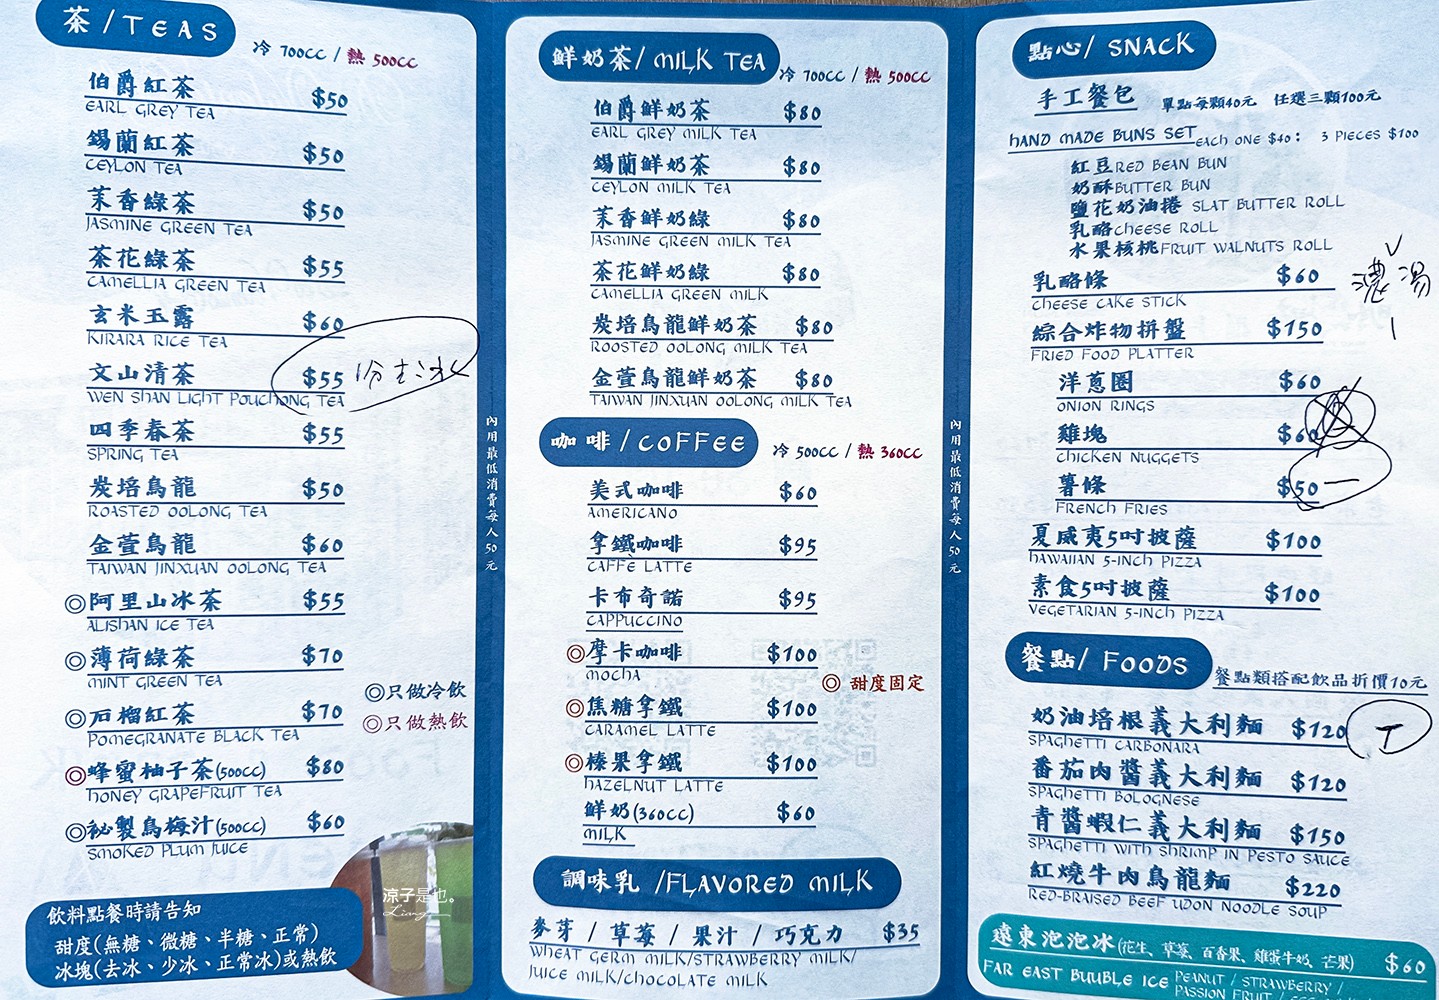 茶/TEAS
冷 700CC / 熱 500CC
伯爵紅茶 $50
EARL GREY TEA
錫蘭紅茶 $50
CEYLON TEA
茉香綠茶 $50
JASMINE GREEN TEA
茶花綠茶 $55
CAMELLIA GREEN TEA
玄米玉露 $60
KIRARA RICE TEA
文山清茶 $55
WEN SHAN LIGHT POUCHONG TEA
四季春茶 $55
SPRING TEA
炭培烏龍 $50
ROASTED OOLONG TEA
金萱烏龍 $60
TAIWAN JINXUAN OOLONG TEA
◎阿里山冰茶 $55
ALISHAN ICE TEA
◎薄荷綠茶 $70
MINT GREEN TEA
◎石榴紅茶 $70
POMEGRANATE BLACK TEA
◎蜂蜜柚子茶(500CC) $80
HONEY GRAPEFRUIT TEA
◎祕製烏梅汁(500CC) $60
SMOKED PLUM JUICE
◎只做冷飲
◎只做熱飲
飲料點餐時請告知
甜度(無糖、微糖、半糖、正常)
冰塊(去冰、少冰、正常冰)或熱飲
涼子是也。
Liang
內用最低消費每人50元
鮮奶茶/ MILK TEA
冷 700CC / 熱 500CC
伯爵鮮奶茶 $80
EARL GREY MILK TEA
錫蘭鮮奶茶 $80
CEYLON MILK TEA
茉香鮮奶綠 $80
JASMINE GREEN MILK TEA
茶花鮮奶綠 $80
CAMELLIA GREEN MILK
炭培烏龍鮮奶茶 $80
ROOSTED OOLONG MILK TEA
金萱烏龍鮮奶茶 $80
TAIWAN JINXUAN OOLONG MILK TEA
咖啡/COFFEE
冷 500CC / 熱 360CC
美式咖啡 $60
AMERICANO
拿鐵咖啡 $95
CAFFÈ LATTE
卡布奇諾 $95
CAPPUCCINO
◎摩卡咖啡 $100
MOCHA
◎ 甜度固定
◎焦糖拿鐵 $100
CARAMEL LATTE
◎榛果拿鐵 $100
HAZELNUT LATTE
鮮奶(360CC) $60
MILK
調味乳 /FLAVORED MILK
麥芽 / 草莓 / 果汁 / 巧克力 $35
WHEAT GERM MILK/STRAWBERRY MILK/
JUICE MILK/CHOCOLATE MILK
內用最低消費每人50元
點心/ SNACK
手工餐包 單點每顆40元 任選三顆100元
HAND MADE BUNS SET EACH ONE $40： 3 PIECES $100
紅豆RED BEAN BUN
奶酥BUTTER BUN
鹽花奶油捲 SLAT BUTTER ROLL
乳酪CHEESE ROLL
水果核桃FRUIT WALNUTS ROLL
乳酪條 $60
CHEESE CAKE STICK
濃湯
綜合炸物拼盤 $150
FRIED FOOD PLATTER
洋蔥圈 $60
ONION RINGS
雞塊 $60
CHICKEN NUGGETS
薯條 $50 一
FRENCH FRIES
夏威夷5吋披薩 $100
HAWAIIAN 5-INCH PIZZA
素食5吋披薩 $100
VEGETARIAN 5-INCH PIZZA
餐點/ FOODS
餐點類搭配飲品折價10元
奶油培根義大利麵 $120
SPAGHETTI CARBONARA
番茄肉醬義大利麵 $120
SPAGHETTI BOLOGNESE
青醬蝦仁義大利麵 $150
SPAGHETTI WITH SHRIMP IN PESTO SAUCE
紅燒牛肉烏龍麵 $220
RED-BRAISED BEEF UDON NOODLE SOUP
遠東泡泡冰(花生、草莓、百香果、雞蛋牛奶、芒果) $60
FAR EAST BUUBLE ICE PEANUT / STRAWBERRY /
PASSION FRUIT /